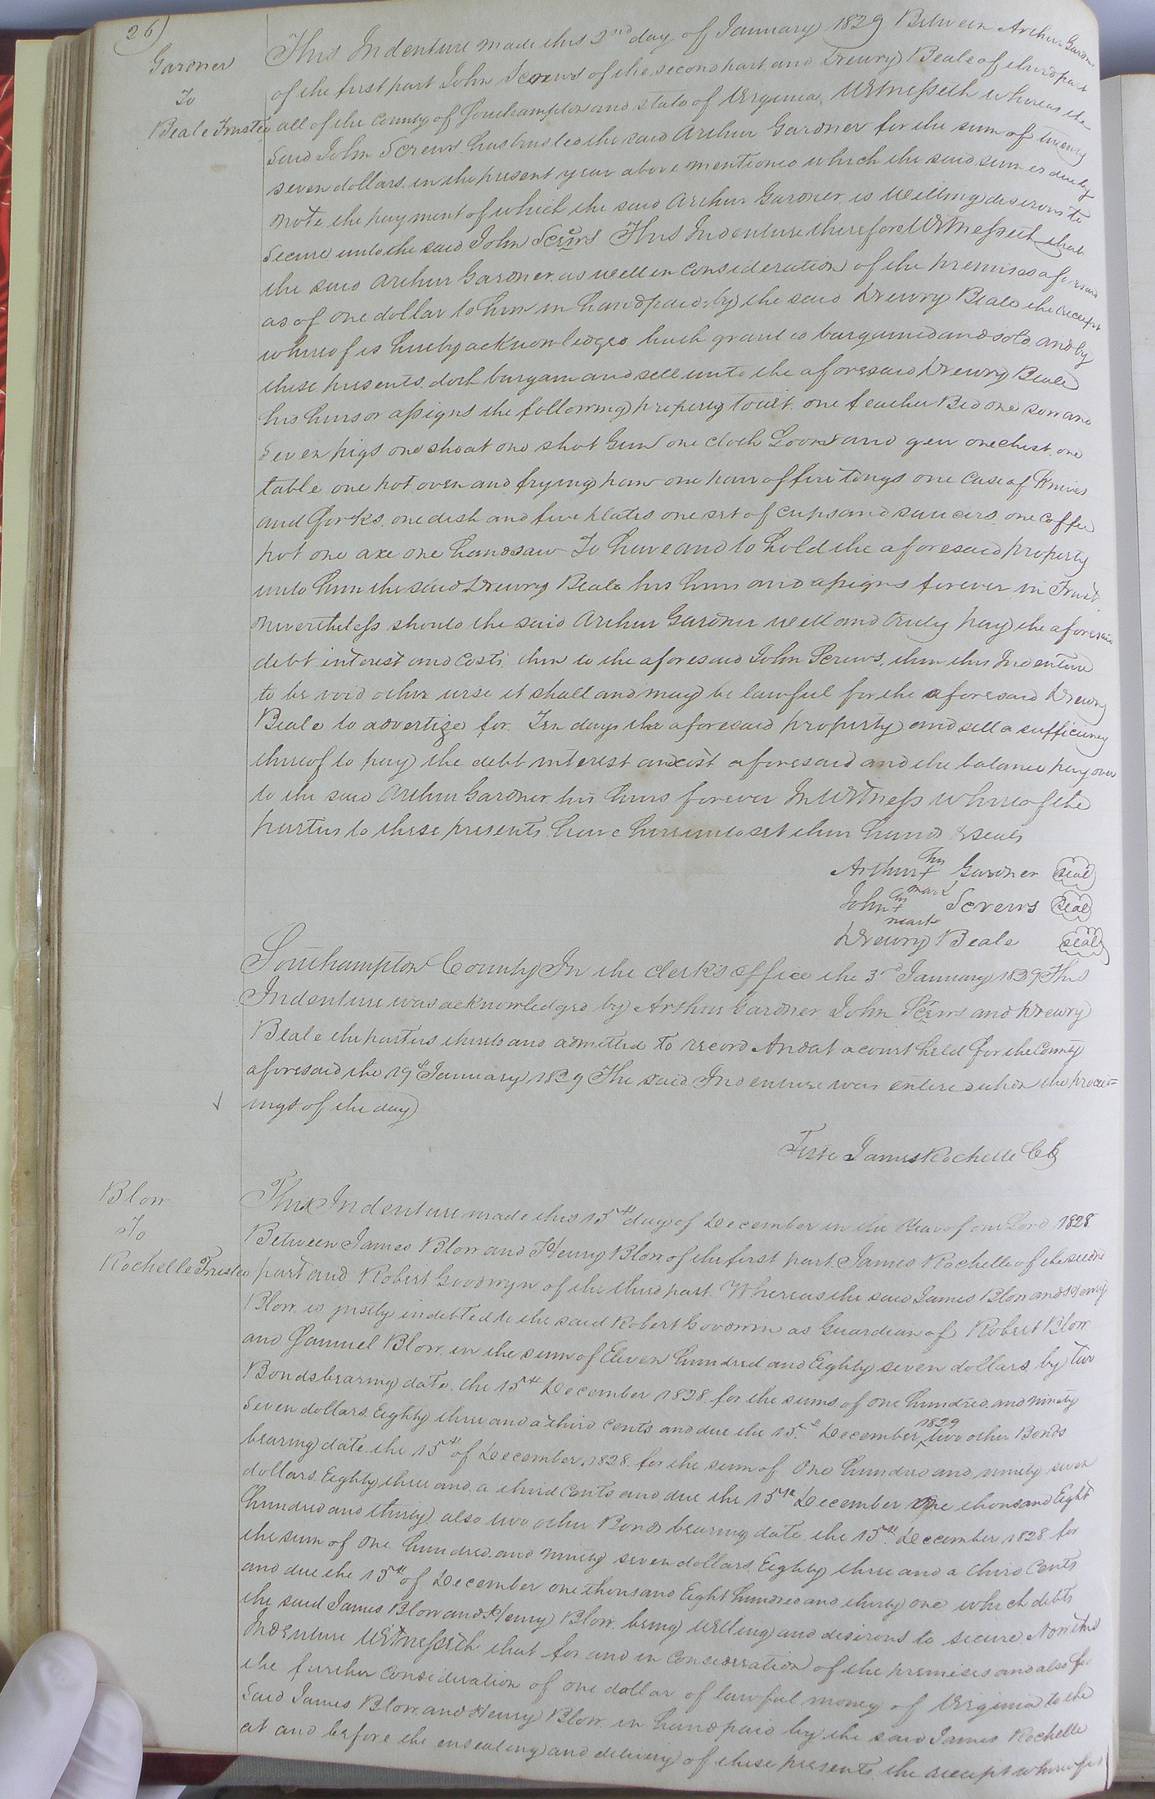 26
Gardner
To
Beale Trustee
This Indenture made this 2nd day of January 1829 Between Arthur Gardner
of the first part John Screws of the second part and Drewry Beale of third part
all of the County of Southampton and state of Virginia, Witnesseth whereas the
said John Screws has trusted the said Arthur Gardner for the sum of twenty
seven dollars in the present year above mentioned which the said sum is due by
note the payment of which the said Arthur Gardner is willing desirous to
secure unto the said John Screws This Indenture therefore Witnesseth that
the said Arthur Gardner as well in consideration of the premises aforesaid
as of one dollar to him in hand paid by the said Drewry Beale the receipt
whereof is hereby acknowledged hath granted bargained and sold and by
these presents doth bargain and sell unto the aforesaid Drewry Beale
his heirs or assigns the following property towit. one feather Bed one sow and
seven pigs one shoat one shot Gun one cloth Loom and gear one chest one
table one pot oven and frying pan one pair of fire tongs one Case of Knives
and forks, one dish and five plates one set of cups and saucers one coffee
pot one axe one handsaw To have and to hold the aforesaid property
unto him the said Drewry Beale his heirs and assigns forever in Trust
Nevertheless should the said Arthur Gardner well and truly pay the aforesaid
debt interest and costs, then to the aforesaid John Screws, then this Indenture
to be void other wise it shall and may be lawful for the aforesaid Drewry
Beale to advertize for Ten days the aforesaid property and sell a sufficiency
thereof to pay the debt interest and cost aforesaid and the balance pay over
to the said Arthur Gardner his heirs forever In Witness whereof the
parties to these presents have hereunto set their hands & seals
Arthur his + mark Gardner seal
John his + mark Screws seal
Drewry Beale seal
Southampton County In the clerks office the 3rd January 1829 This
Indenture was acknowledged by Arthur Gardner John Screws and Drewry
Beale the parties thereto and admitted to record And at a court held for the County
aforesaid the 19th January 1829 The said Indenture was entered upon the proceed=
ings of the day
Teste James Rochelle CC
Blow
To
Rochelle Trustee
This Indenture made this 15th day of December in the Year of our Lord 1828
Between James Blow and Henry Blow of the first part, James Rochelle of the second
part and Robert Goodwyn of the third part. Whereas the said James Blow and Henry
Blow is justly indebted to the said Robert Goodwyn as Guardian of Robert Blow
and Samuel Blow in the sum of Eleven hundred and Eighty seven dollars, by two
Bonds bearing date the 15th December 1828 for the sums of one hundred and ninety
seven dollars Eighty three and a third Cents and due the 15th December 1829 two other Bonds
bearing date the 15th of December 1828 for the sum of One hundred and ninety seven
dollars Eighty three and a third Cents and due the 15th December One thousand Eight
hundred and thirty, also two other Bonds bearing date the 15th December 1828 for
the sum of One hundred and ninety seven dollars Eighty three and a third Cents
and due the 15th of December one thousand Eight hundred and thirty one which debts
the said James Blow and Henry Blow being willing and desirous to secure, Now this
Indenture Witnesseth that for and in Consideration of the premises and also for
the further consideration of one dollar of lawful money of Virginia to the
said James Blow and Henry Blow in hand paid by the said James Rochelle
at and before the ensealing and delivery of these presents the receipt whereof is